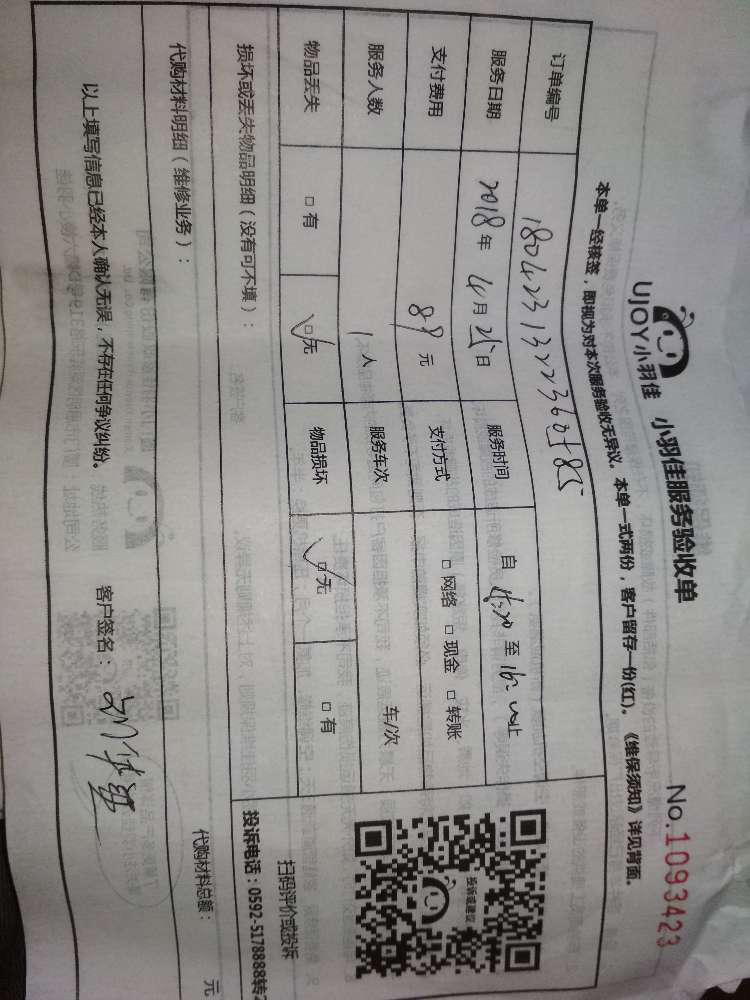 UJOY小羽佳 小羽佳服务验收单
No.1093423
本单一经核签，即视为对本次服务验收无异议。本单一式两份，客户留存一份(红)。《维保须知》详见背面。
订单编号
服务日期 2018年4月25日 服务时间 自 至
支付费用 89元 支付方式 □网络 □现金 □转账
服务人数 1人 服务车次 车/次
物品丢失 □有 □无 物品损坏 □无 □有
投诉或建议
扫码评价或投诉
投诉电话：0592-5178888转2
损坏或丢失物品明细（没有可不填）：
代购材料明细（维修业务）：
代购材料总额： 元
以上填写信息已经本人确认无误，不存在任何争议纠纷。 客户签名：